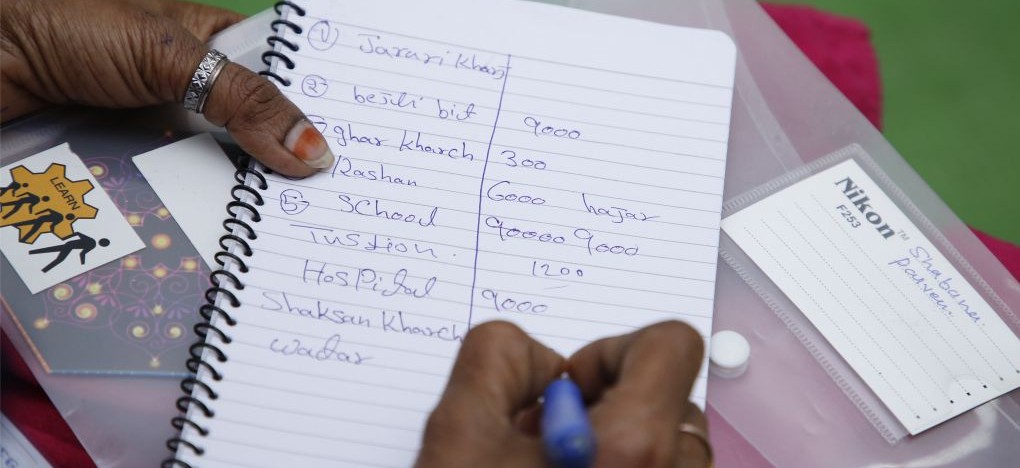 ① Jarari Kharj
② besili bil 9000
ghar kharch 300
Rashan 6000 hajar
⑤ School 90000 9000
Tustion. 1200
Hospital 9000
Shaksan Kharch
wadar
LEARN
Nikon™
F253
Shabana.
Parveen.